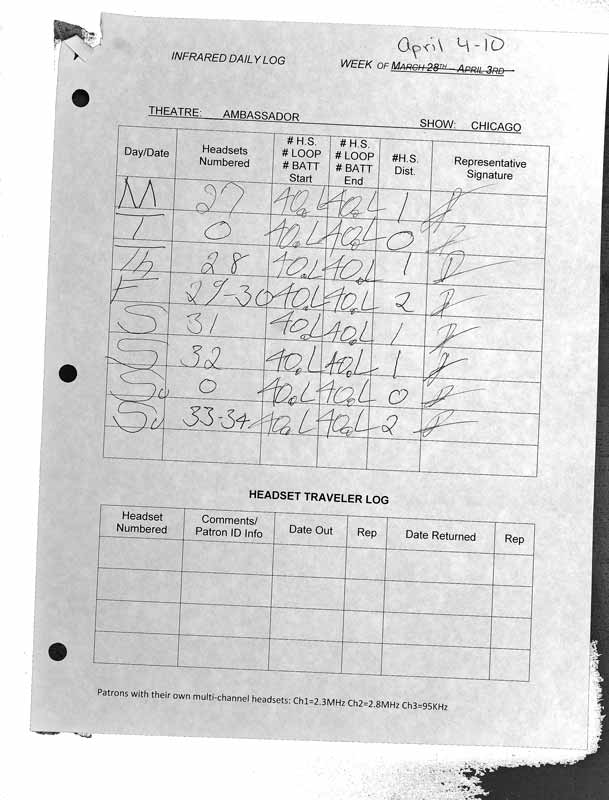 April 4-10
INFRARED DAILY LOG WEEK OF MARCH 28TH – APRIL 3RD
THEATRE: AMBASSADOR SHOW: CHICAGO
Day/Date Headsets Numbered # H.S. # LOOP # BATT Start # H.S. # LOOP # BATT End #H.S. Dist. Representative Signature
M 27 40.L 40.L 1
T 0 40.L 40.L 0
Th 28 40.L 40.L 1
F 29-30 40.L 40.L 2
S 31 40.L 40.L 1
S 32 40.L 40.L 1
Su 0 40.L 40.L 0
Su 33-34 40.L 40.L 2
HEADSET TRAVELER LOG
Headset Numbered Comments/ Patron ID Info Date Out Rep Date Returned Rep
Patrons with their own multi-channel headsets: Ch1=2.3MHz Ch2=2.8MHz Ch3=95KHz